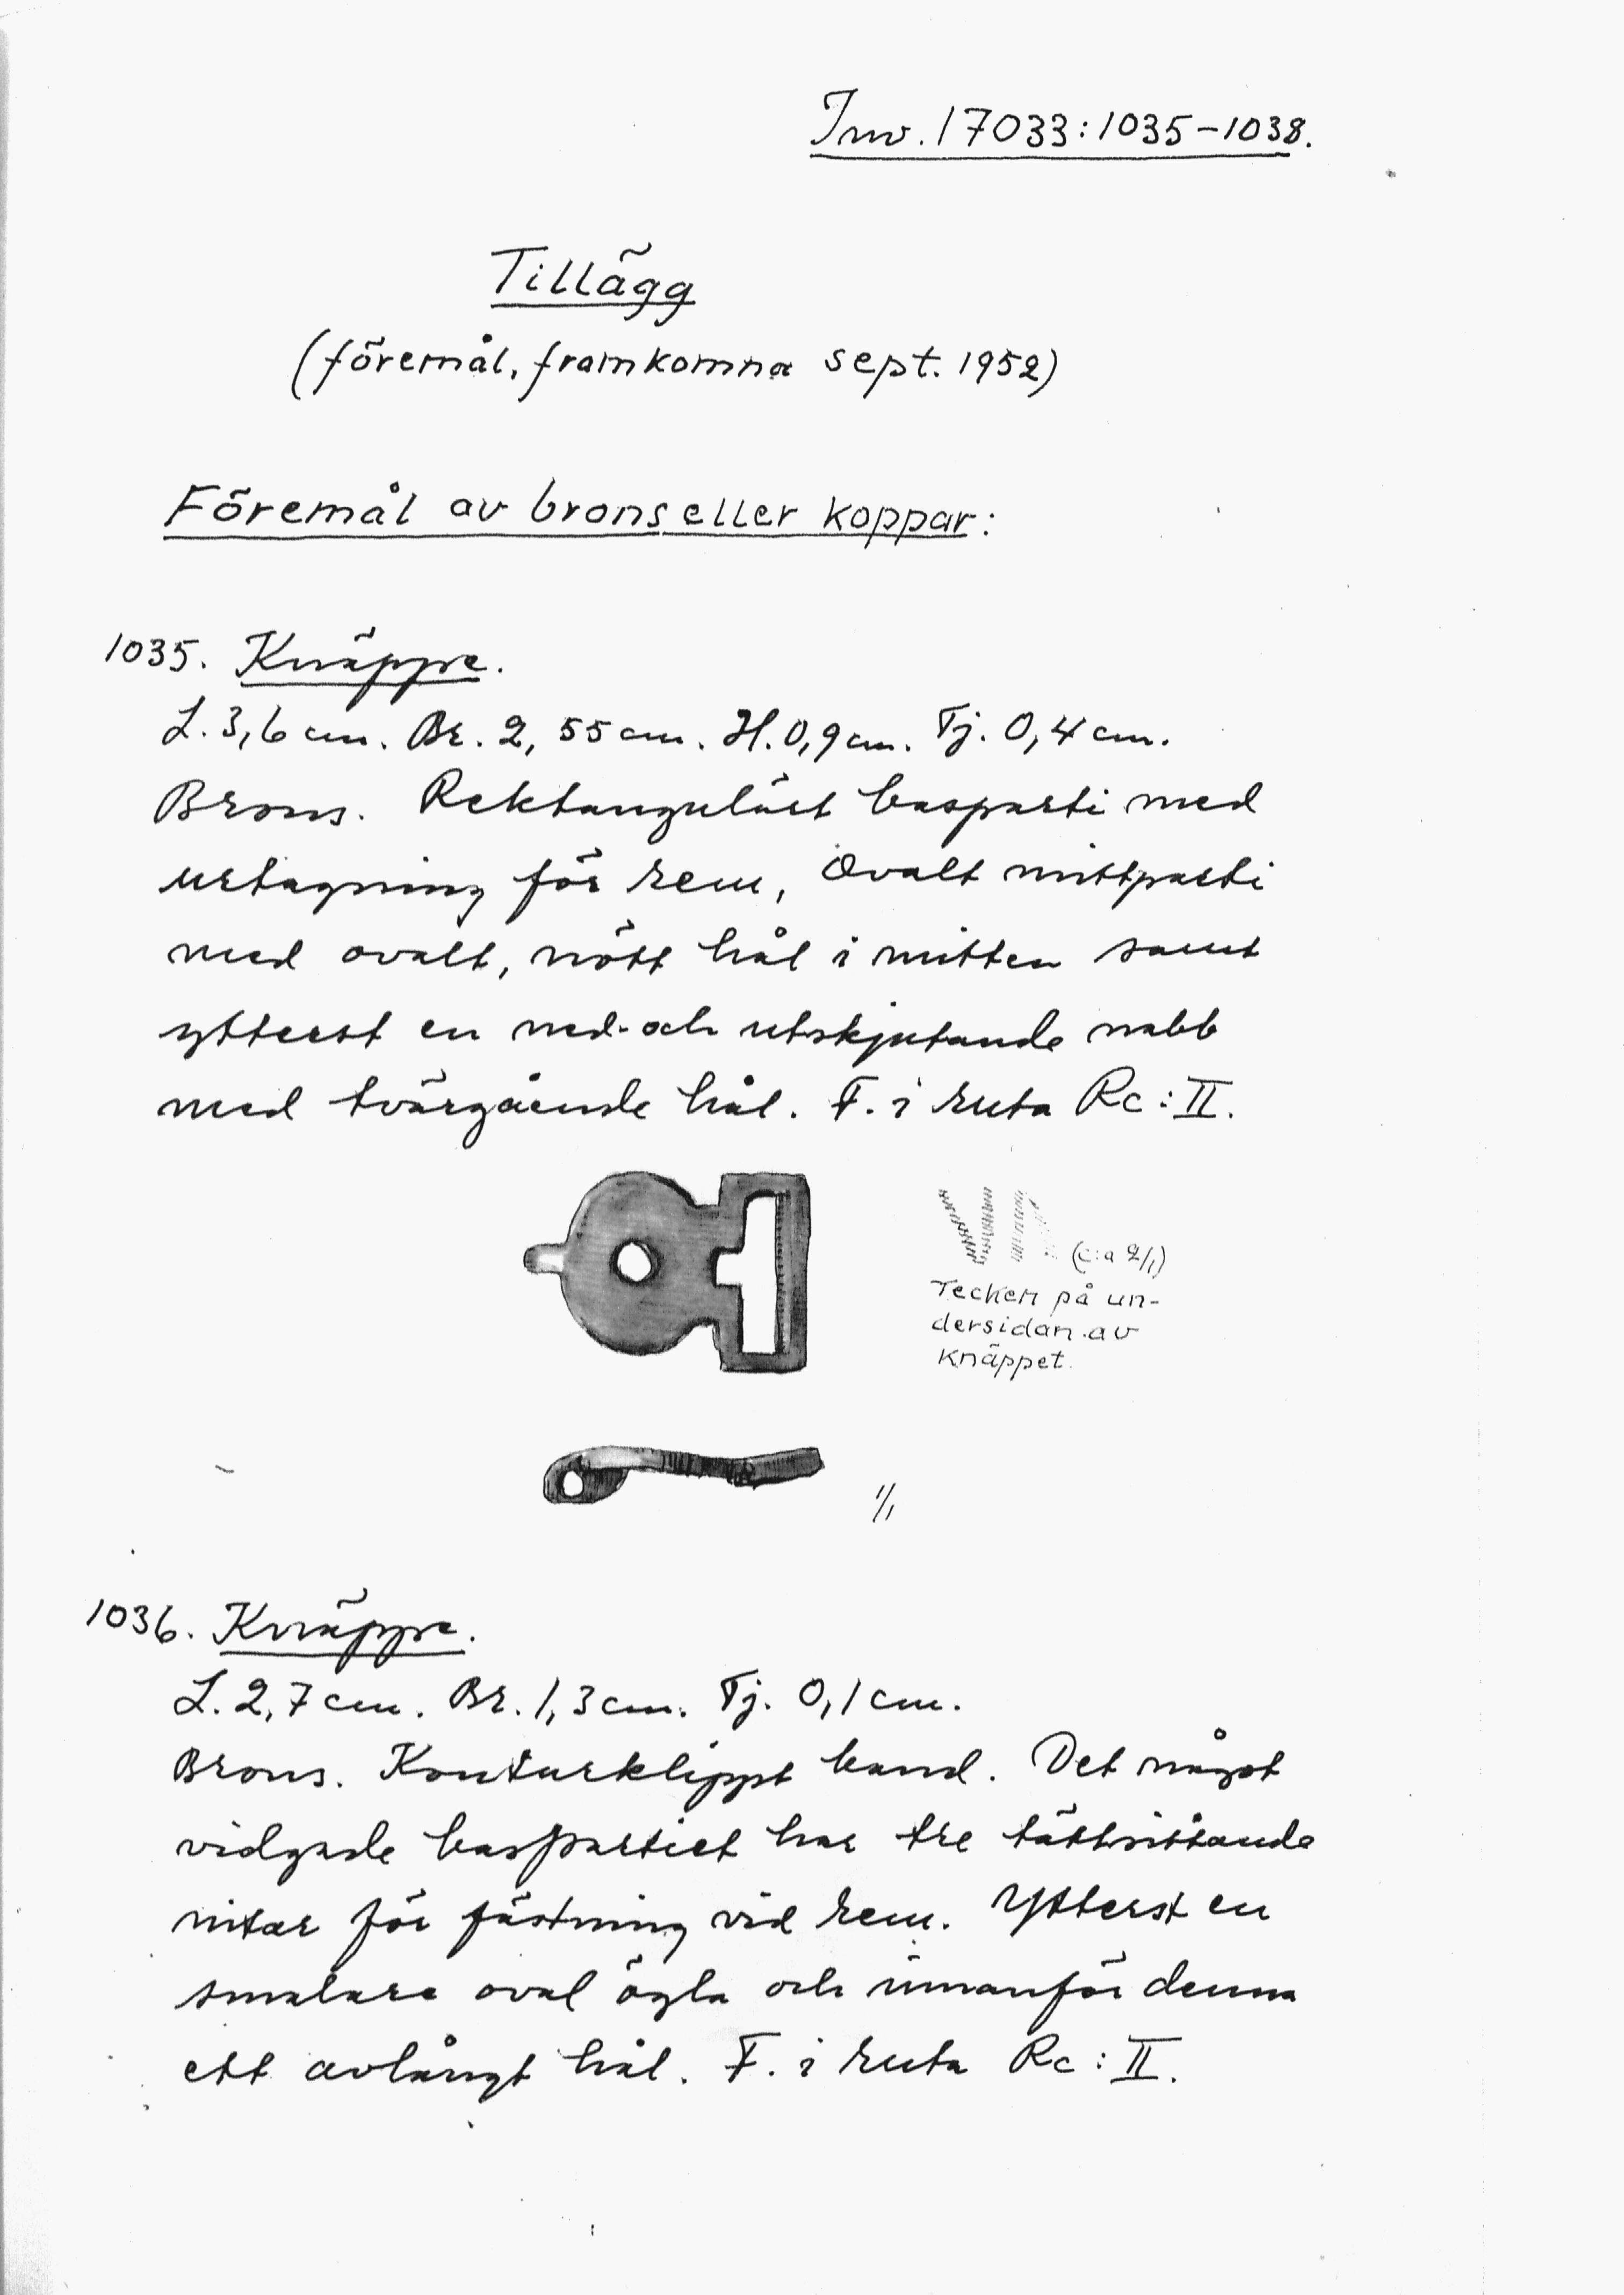 Inv. 17033:1035-1038.
Tillägg
(föremål, framkomna sept. 1952)
Föremål av brons eller koppar:
1035. Knäppe.
L. 3,6 cm. Br. 2,55 cm. H. 0,9 cm. Tj. 0,4 cm.
Brons. Rektangulärt basparti med
urtagning för rem, Ovalt mittparti
med ovalt, nött hål i mitten samt
ytterst en ned- och utskjutande nabb
med tvärgående hål. F. i ruta Rc:II.
(c:a 2/1)
Tecken på un-
dersidan av
knäppet.
1/1
1036. Knäppe.
L. 2,7 cm. Br. 1,3 cm. Tj. 0,1 cm.
Brons. Konturklippt band. Det något
vidgade baspartiet har tre tättsittande
nitar för fästning vid rem. Ytterst en
smalare oval ögla och innanför denna
ett avlångt hål. F. i ruta Rc:II.